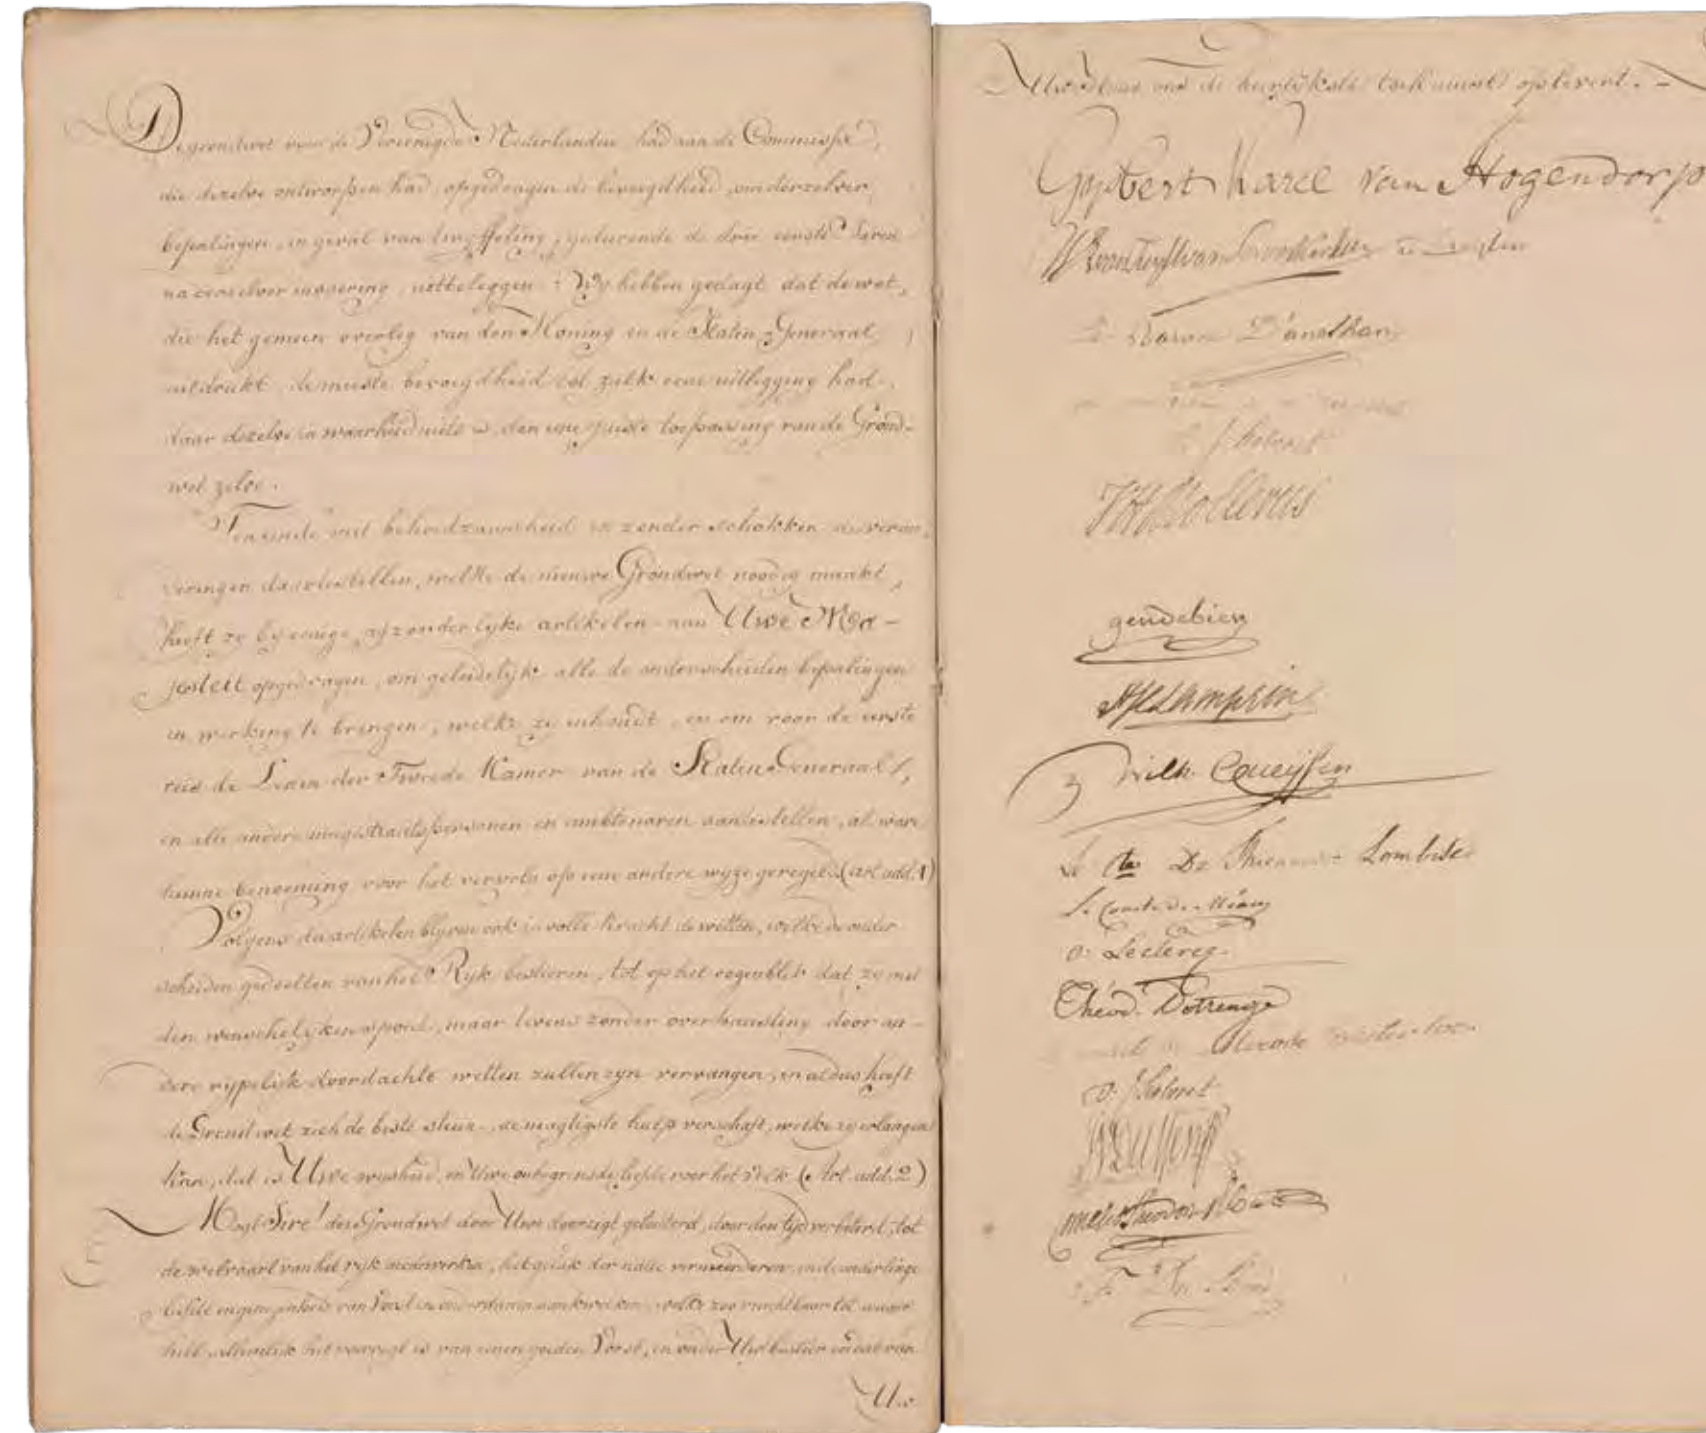 De grondwet voor de Vereenigde Nederlanden had aan de Commissie,
die dezelve ontworpen had, opgedragen de bevoegdheid, om derzelver
bepalingen, in geval van twyffeling, gedurende de drie eerste Jaren
na derzelver invoering, uitteleggen: Wy hebben gedagt dat de wet,
die het gemeen overleg van den Koning en de Staten Generaal
uitdrukt, de meeste bevoegdheid tot zulk eene uitlegging had,
daar dezelve in waarheid niets is, dan eene juiste toepassing van de Grond-
wet zelve.
Ten einde met behoedzaamheid en zonder schokken de veran-
deringen daartestellen, welke de nieuwe Grondwet noodig maakt,
heeft zy by eenige afzonderlyke artikelen aan Uwe Ma-
jesteit opgedragen, om geleidelyk alle de onderscheiden bepalingen
in werking te brengen, welke zy inhoudt, en om voor de eerste
reis de Leden der Tweede Kamer van de Staten Generaal,
en alle andere magistraatspersonen en ambtenaren aantestellen, al ware
hunne benoeming voor het vervolg op eene andere wyze geregeld. (art. add. 1)
Volgens die artikelen blyven ook in volle kracht de wetten, welke de onder-
scheiden gedeelten van het Ryk bestieren, tot op het oogenblik dat zy met
den wenschelyken spoed, maar tevens zonder overhaasting door an-
dere rypelyk doordachte wetten zullen zyn vervangen, en aldus heeft
de Grondwet zich de beste steun, de magtigste hulp verschaft, welke zy erlangen
konn, dat is Uwe wysheid, en Uwe onbegrensde liefde voor het Volk (Art. add. 2)
Mogt Sire! deze Grondwet door Uwe doorzigt geleiderd, door den tyd verbeterd, tot
de welvaart van het ryk medewerken, het geluk der natie vermeerderen en de onderlinge
liefde en genegenheid van Vorst en onderdanen aankweeken, welke zoo vruchtbaar tot
het voorregt is van eenen goeden Vorst, en onder Uw bestier en dat van
Uw
Uw Huis ons de heerlykste toekomst oplevert.
Gysbert Karel van Hogendorp
W F van Tuyll van Serooskerken
Le Baron D'anethan
J. Holvoet
J H Mollerus
gendebien
Wilh. Queysen
Le Cte De Thiennes Lombise
Le Comte de Méan
O. Leclercq
Théod. Dotrenge
Mérode
O. J. Holvoet